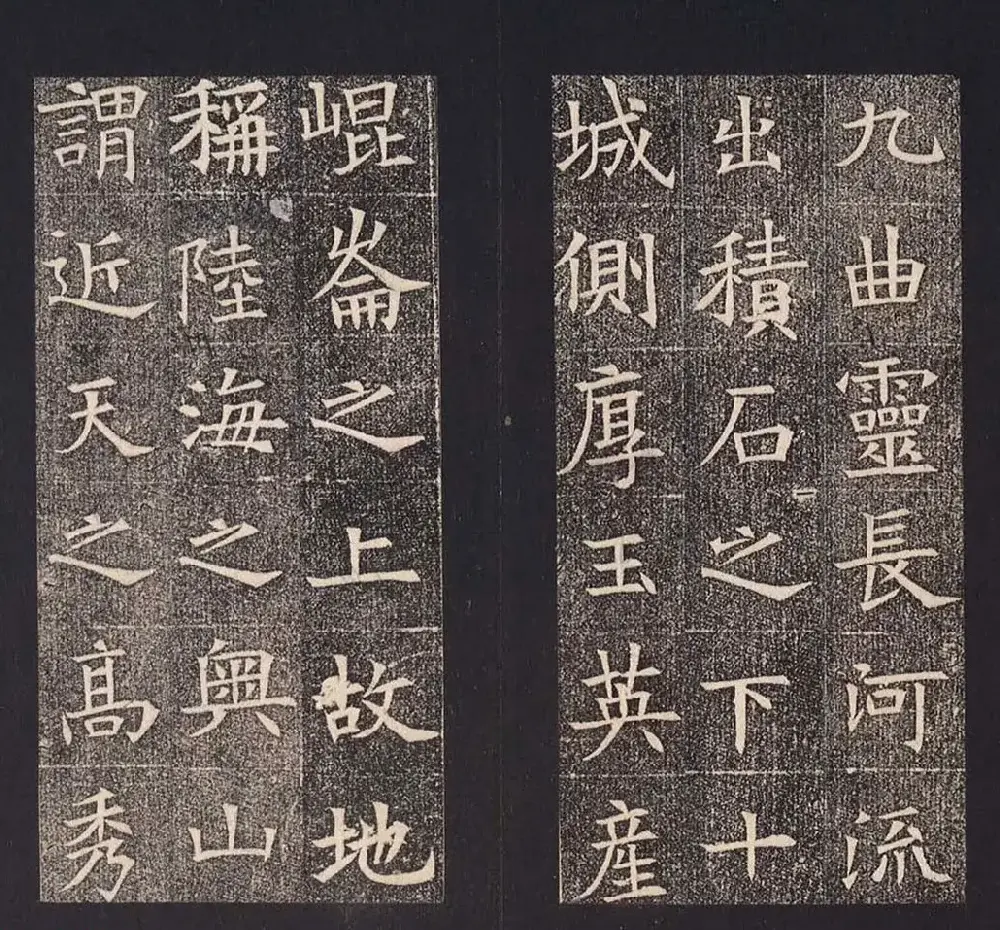 九曲靈長河流
出積石之下十
城側厚玉英産
崐崘之上故地
稱陸海之奥山
謂近天之髙秀